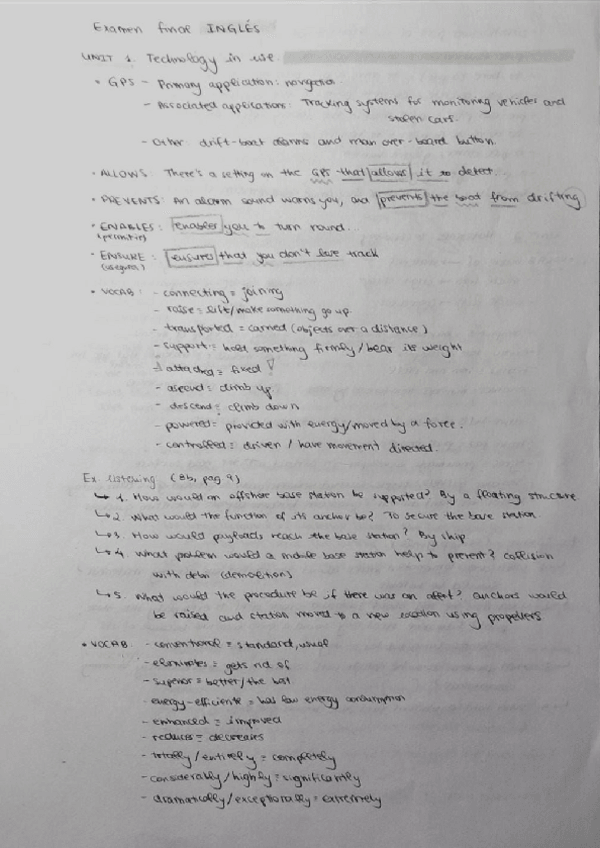 Examen final INGLÉS
UNIT 1. Technology in use
• GPS - Primary application: navigation.
- Associated applications: Tracking systems for monitoring vehicles and
stolen cars.
- Other: drift-boat alarms and man over-board button.
• ALLOWS: There's a setting on the GPS that allows it to detect...
• PREVENTS: An alarm sound warns you, and prevents the boat from drifting
• ENABLES: enables you to turn round...
(permitir)
• ENSURE: ensures that you don't lose track
(asegurar)
• VOCAB: - connecting = joining
- raise = lift/make something go up.
- transported = carried (objects over a distance)
- support = hold something firmly/bear its weight
- attached = fixed
- ascend = climb up
- descend = climb down
- powered = provided with energy/moved by a force.
- controlled = driven / have movement directed.
Ex listening (8b, pag 9)
↳ 1. How would an offshore base station be supported? By a floating structure
↳ 2. What would the function of its anchor be? To secure the base station
↳ 3. How would payloads reach the base station? By ship
↳ 4. What problem would a mobile base station help to prevent? collision
with debris (demolition)
↳ 5. What would the procedure be if there was an alert? anchors would
be raised and station moved to a new location using propellers
• VOCAB - conventional = standard, usual
- eliminates = gets rid of
- superior = better/the best
- energy-efficiente = has low energy consumption
- enhanced = improved
- reduces = decreases
- totally/entirely = completely
- considerably/highly = significantly
- dramatically/exceptionally = extremely